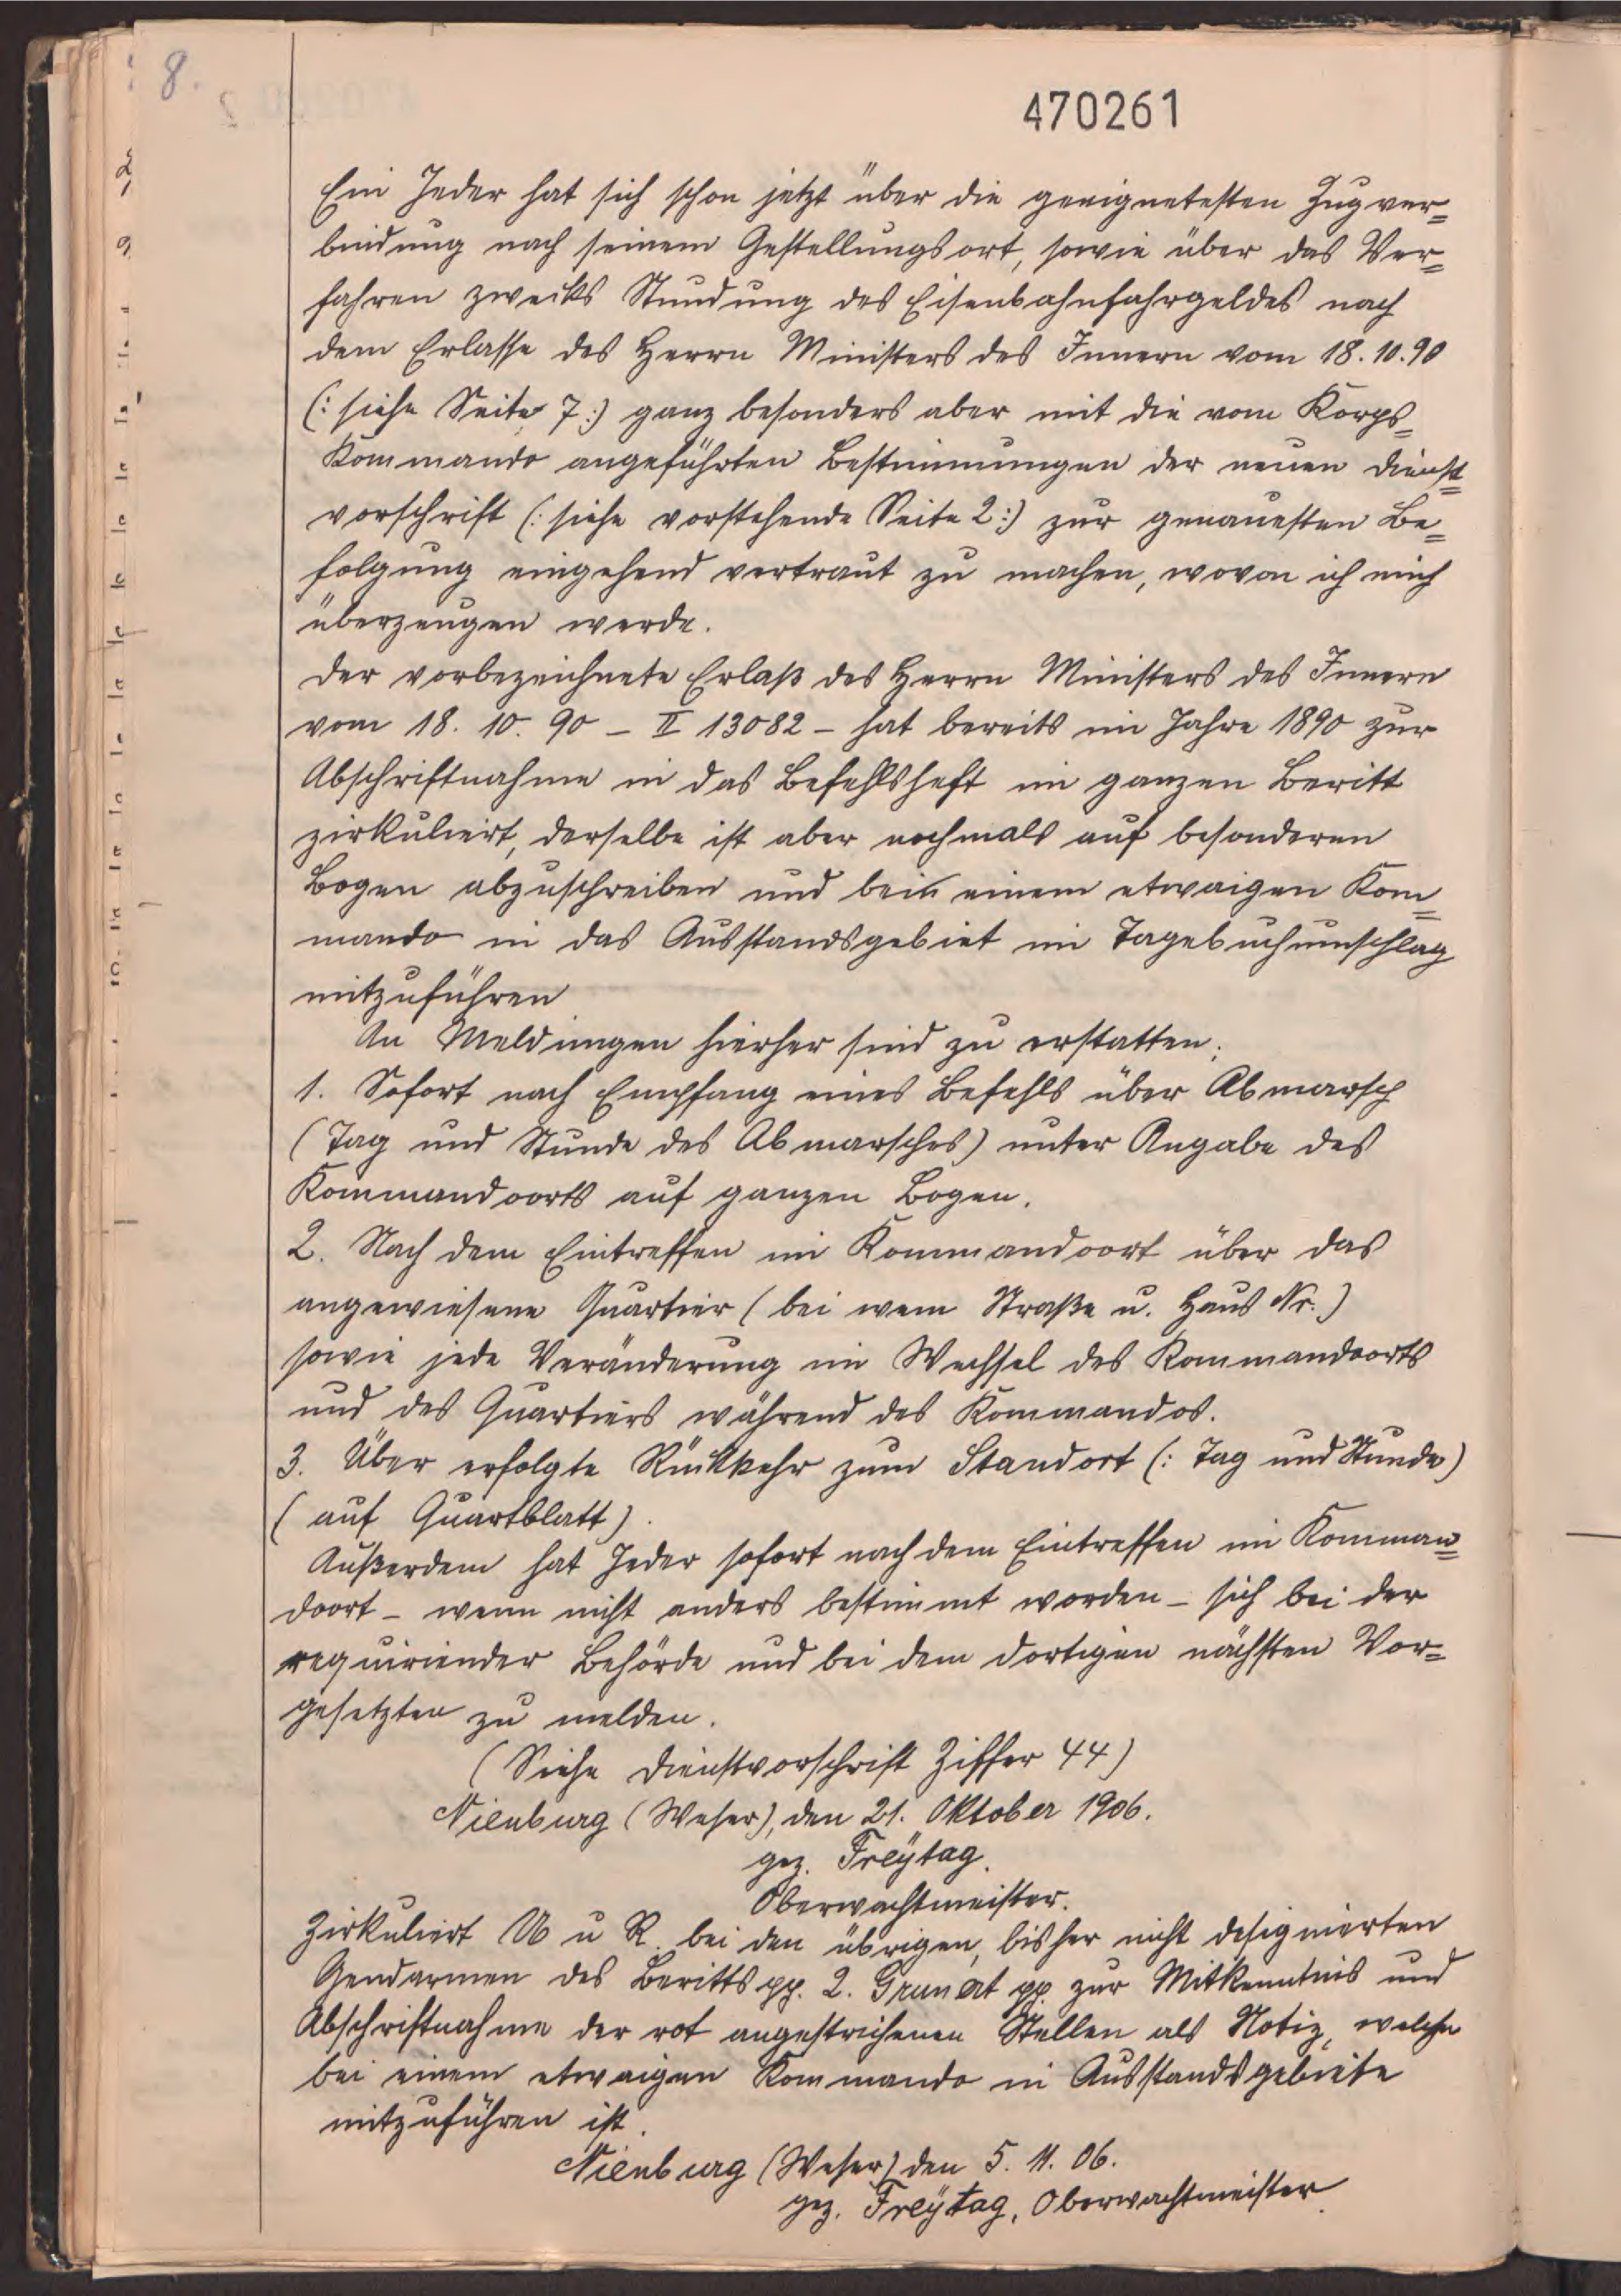 8.
470261
Ein Jeder hat sich schon jetzt über die geeignetesten Zugver=
bindung nach seinem Gestellungsort, sowie über das Ver=
fahren zwecks Stundung des Eisenbahnfahrgeldes nach
dem Erlasse des Herrn Ministers des Innern vom 18.10.90
(: siehe Seite 7 :) ganz besonders aber mit die vom Korps=
Kommando angeführten Bestimmungen der neuen Dienst=
vorschrift (: siehe vorstehende Seite 2 :) zur genauesten Be=
folgung eingehend vertraut zu machen, wovon ich mich
überzeugen werde.
Der vorbezeichnete Erlaß des Herrn Ministers des Innern
vom 18. 10. 90 – II 13082 – hat bereits im Jahre 1890 zur
Abschriftnahme in das Befehlsheft im ganzen Beritt
zirkuliert, derselbe ist aber nochmals auf besonderen
Bogen abzuschreiben und bein einem etwaigen Kom=
mando in das Ausstandsgebiet im Tagebuchumschlag
mitzuführen
An Meldungen hierher sind zu erstatten:
1. Sofort nach Empfang eines Befehls über Abmarsch
(Tag und Stunde des Abmarsches) unter Angabe des
Kommandoorts auf ganzen Bogen.
2. Nach dem Eintreffen im Kommandoort über das
angewiesene Quartier (bei wem Straße u. Haus Nr.)
sowie jede Veränderung im Wechsel des Kommandoorts
und des Quartiers während des Kommandos.
3. Über erfolgte Rückkehr zum Standort (: Tag und Stunde)
(auf Quartblatt).
Außerdem hat Jeder sofort nach dem Eintreffen im Komman=
doort – wenn nicht anders bestimmt worden – sich bei der
requirierender Behörde und bei dem dortigen nächsten Vor=
gesetzten zu melden.
(Siehe Dienstvorschrift Ziffer 44)
Nienburg (Weser), den 21. Oktober 1906.
gez. Freÿtag.
Oberwachtmeister.
Zirkuliert U u R. bei den übrigen, bisher nicht designierten
Gendarmen des Beritts pp. 2. Grunert pp. zur Mitkenntnis und
Abschriftnahme der rot angestrichenen Stellen als Notiz, welche
bei einem etwaigen Kommando in Ausstandsgebiete
mitzuführen ist.
Nienburg (Weser) den 5. 11. 06.
gez. Freÿtag, Oberwachtmeister.